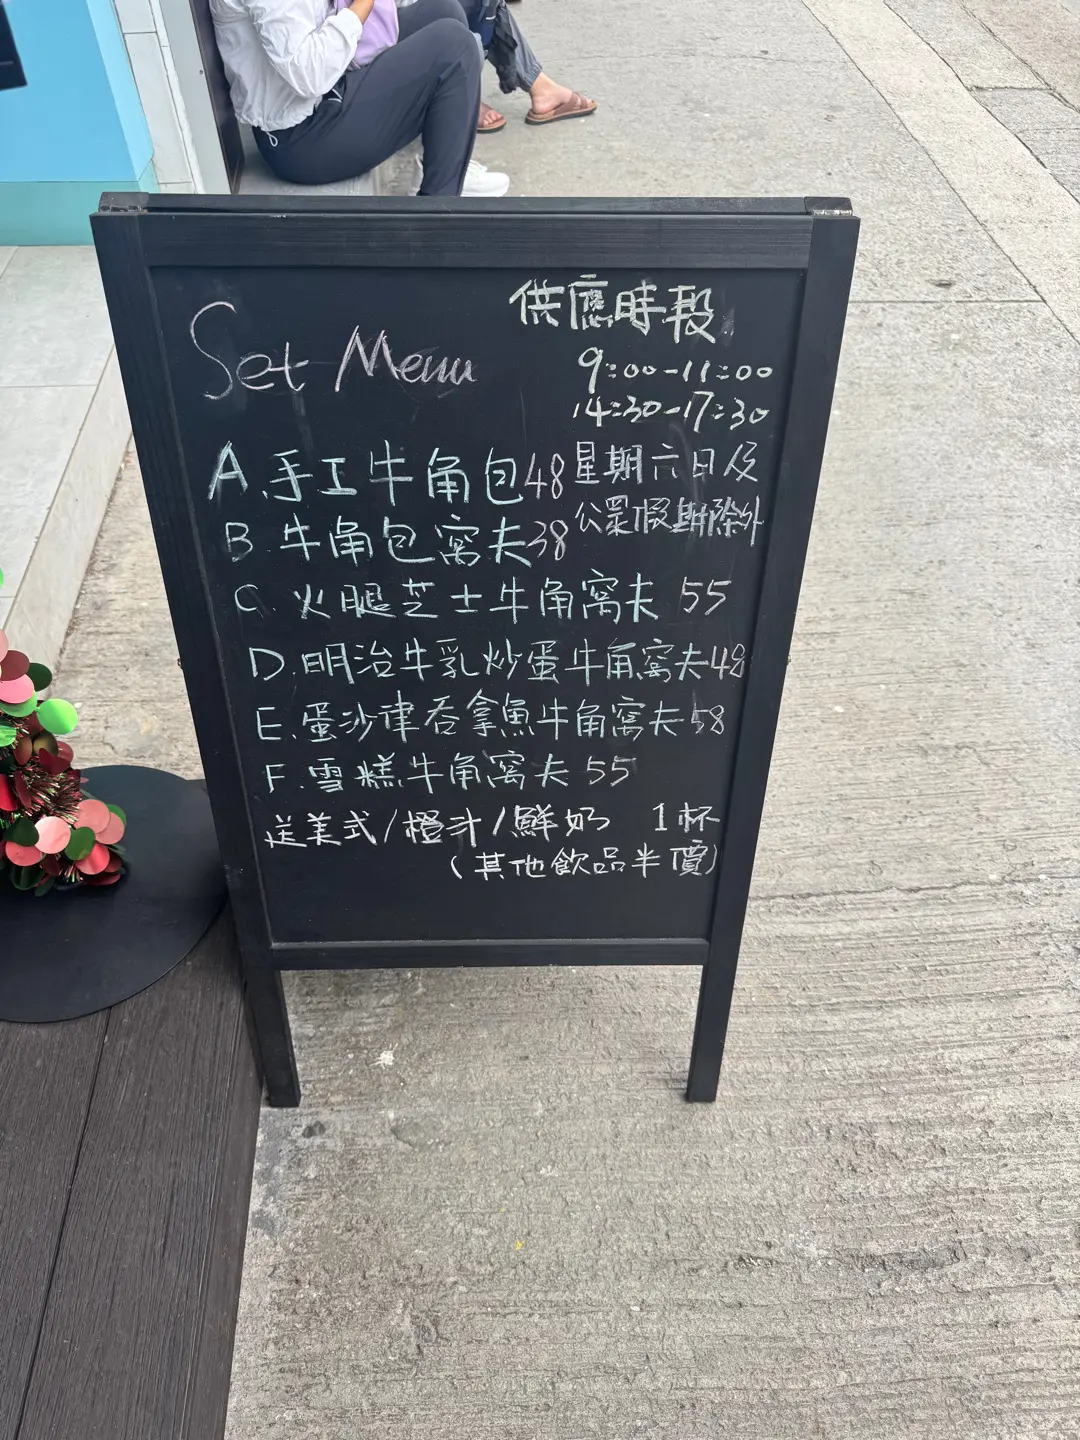 供應時段
Set Menu
9:00-11:00
14:30-17:30
星期六日及
公眾假期除外
A.手工牛角包48
B 牛角包窩夫38
C. 火腿芝士牛角窩夫 55
D.明治牛乳炒蛋牛角窩夫48
E.蛋沙律吞拿魚牛角窩夫58
F.雪糕牛角窩夫55
送美式/橙汁/鮮奶 1杯
(其他飲品半價)